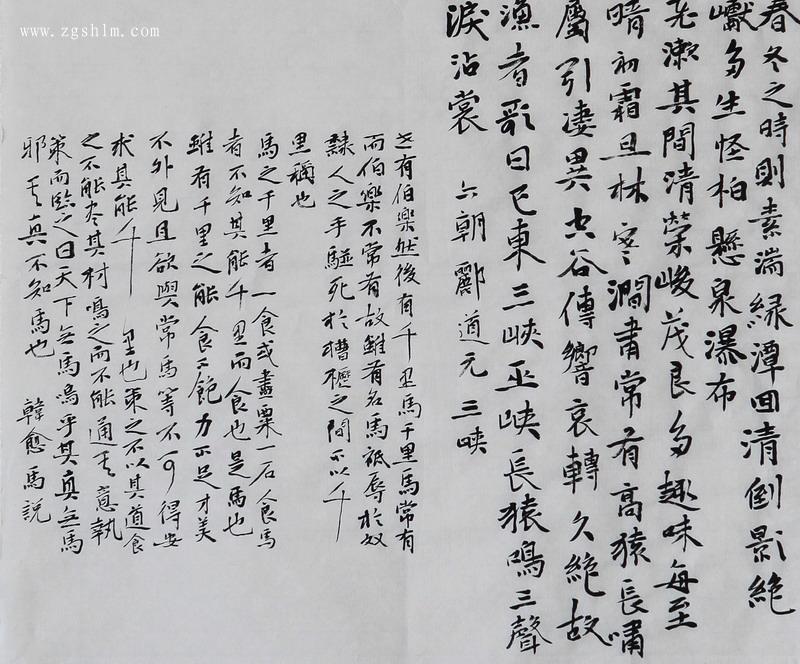 www.zgshlm.com
春冬之時則素湍綠潭回清倒影絕
巘多生怪柏懸泉瀑布
飛漱其間清榮峻茂良多趣味每至
晴初霜旦林寒澗肅常有高猿長嘯
屬引淒異空谷傳響哀轉久絕故
漁者歌曰巴東三峽巫峽長猿鳴三聲
淚沾裳 六朝酈道元三峽
世有伯樂然後有千里馬千里馬常有
而伯樂不常有故雖有名馬祗辱於奴
隸人之手駢死於槽櫪之間不以千
里稱也
馬之千里者一食或盡粟一石食馬
者不知其能千里而食也是馬也
雖有千里之能食不飽力不足才美
不外見且欲與常馬等不可得安
求其能千 里也策之不以其道食
之不能盡其材鳴之而不能通其意執
策而臨之曰天下無馬嗚乎其真無馬
邪其真不知馬也 韓愈馬說